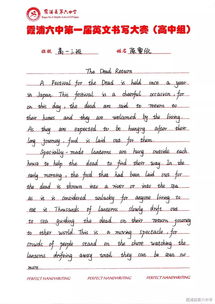 霞浦六中第一届英文书写大赛（高中组）
班级 高一3班 姓名
The Dead Return
A Festival for the Dead is held once a year
in Japan. This festival is a cheerful occasion, for
on this day, the dead are said to return to
their homes and they are welcomed by the living.
As they are expected to be hungry after their
long journey, food is laid out for them.
Specially-made lanterns are hung outside each
house to help the dead to find their way. In the
early morning, the food that had been laid out for
the dead is thrown into a river or into the sea
as it is considered unlucky for anyone living to
Thousands of lanterns slowly drift out
to sea guiding the dead on their return journey
to other world. This is a moving spectacle for
crowds of people stand on the shore watching the
lanterns drifting away until they can be seen no
more.
PERFECT HANDWRITING PERFECT HANDWRITING PERFECT HANDWRITING